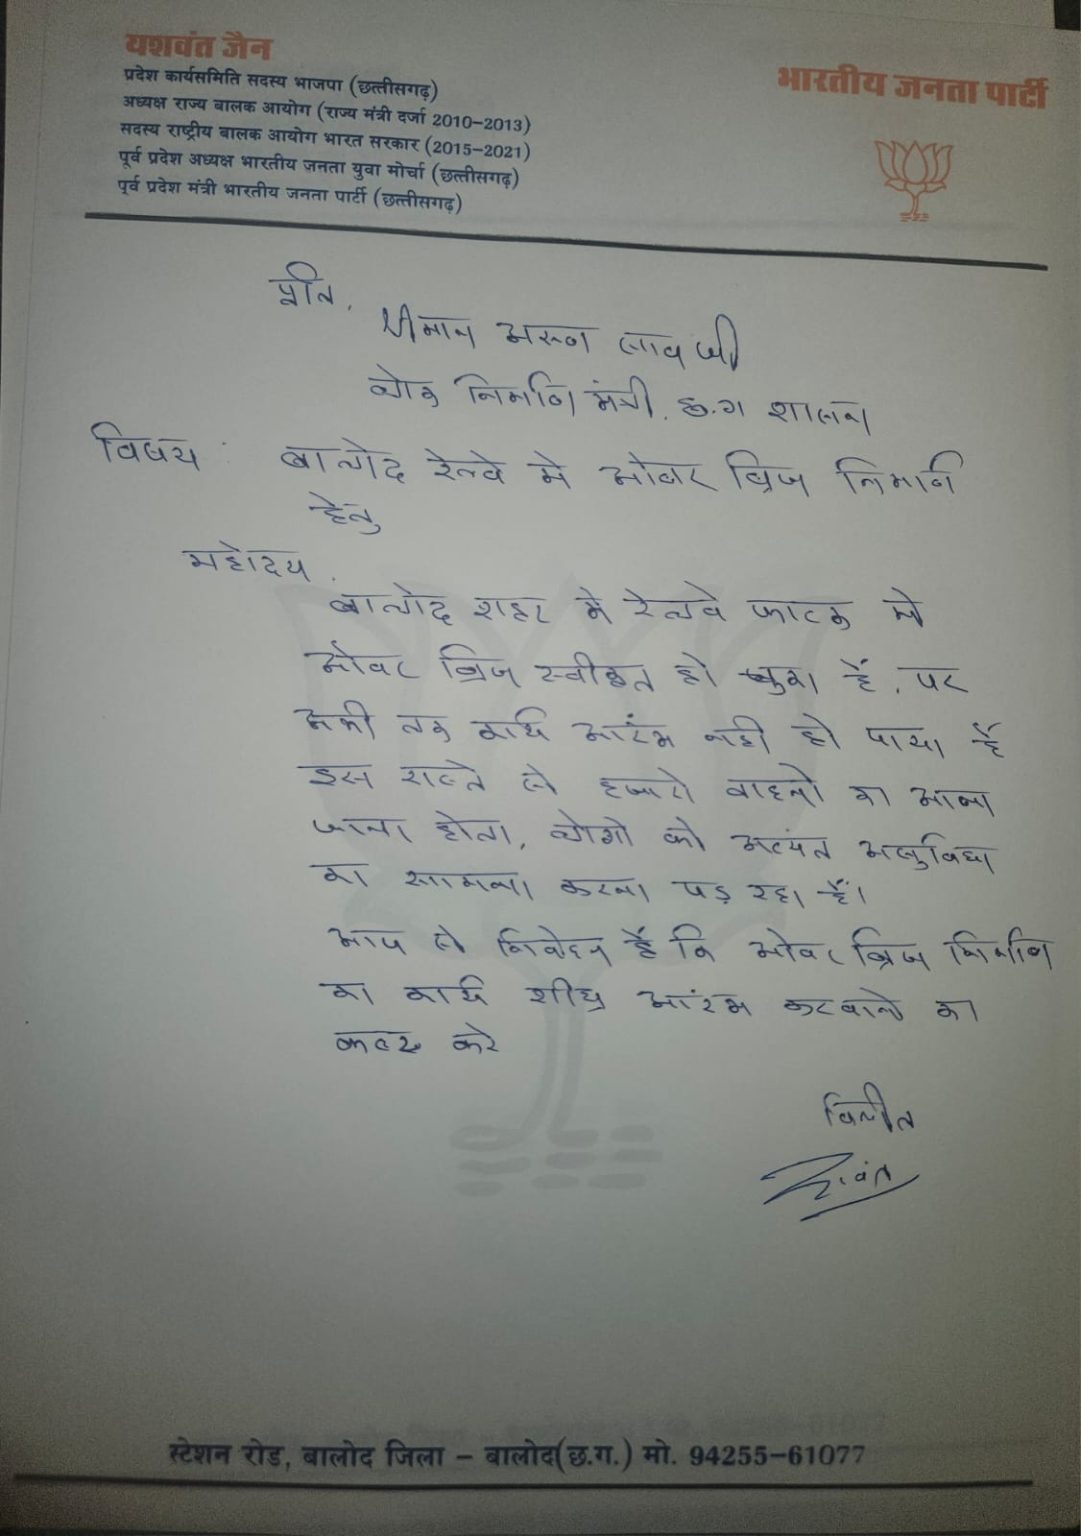 यशवंत जैन
प्रदेश कार्यसमिति सदस्य भाजपा (छत्तीसगढ़)
अध्यक्ष राज्य बालक आयोग (राज्य मंत्री दर्जा 2010-2013)
सदस्य राष्ट्रीय बालक आयोग भारत सरकार (2015-2021)
पूर्व प्रदेश अध्यक्ष भारतीय जनता युवा मोर्चा (छत्तीसगढ़)
पूर्व प्रदेश मंत्री भारतीय जनता पार्टी (छत्तीसगढ़)
भारतीय जनता पार्टी
प्रति,
श्रीमान अरुण साव जी
लोक निर्माण मंत्री. छ.ग शासन
विषय : बालोद रेल्वे मे ओवर ब्रिज निर्माण
हेतु
महोदय,
बालोद शहर मे रेल्वे फाटक मे
ओवर ब्रिज स्वीकृत हो चुका हैं, पर
अभी तक कार्य आरंभ नही हो पाया हैं
इस रास्ते से हजारो वाहनो का आना
जाना होता, लोगो को अत्यंत असुविधा
का सामना करना पड़ रहा हैं।
आप से निवेदन हैं कि ओवर ब्रिज निर्माण
का कार्य शीघ्र आरंभ करवाने का
कष्ट करे
विनीत
स्टेशन रोड, बालोद जिला – बालोद(छ.ग.) मो. 94255-61077